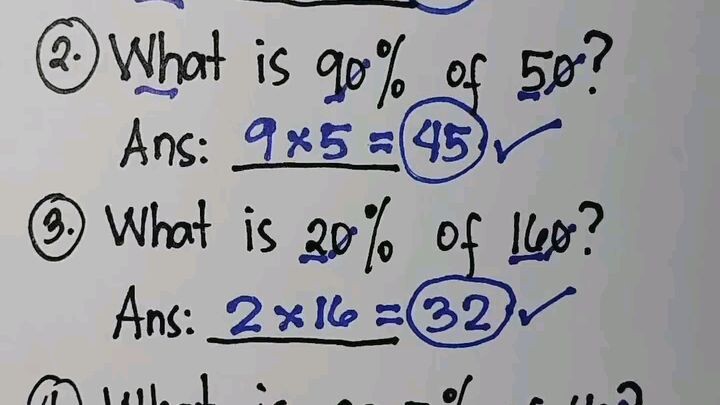 2. What is 90% of 50?
Ans: 9 x 5 = 45 ✓
3. What is 20% of 160?
Ans: 2 x 16 = 32 ✓
What is